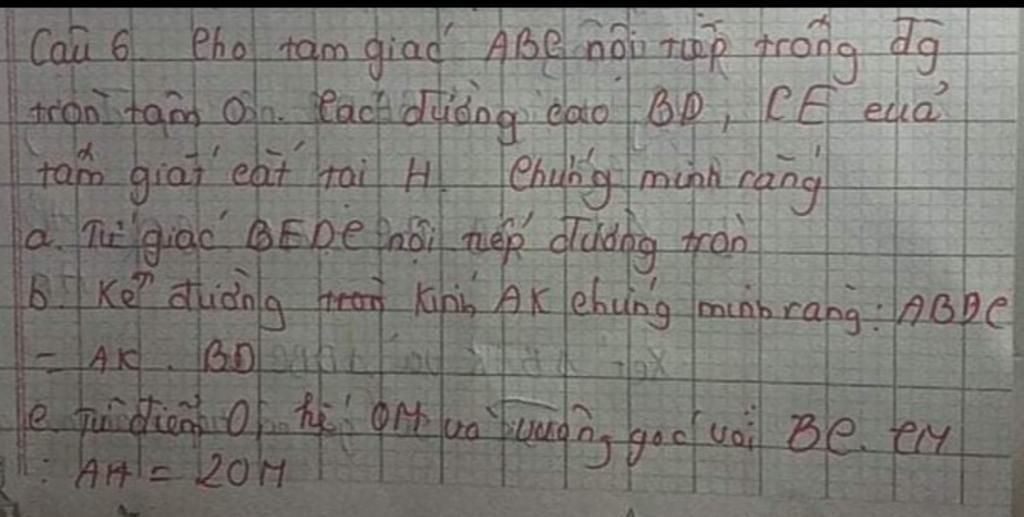 Câu 6. Cho tam giác ABC nội tiếp trong đg
tròn tâm O. Các đường cao BD, CE của
tam giác cắt tại H. Chứng minh rằng
a. Tứ giác BEDC nội tiếp đường tròn
B. Kẻ đường kính AK chứng minh rằng: AB BC
= AK . BD
c. Từ điểm O kẻ OM vuông góc với BC. CM
: AH = 2OM